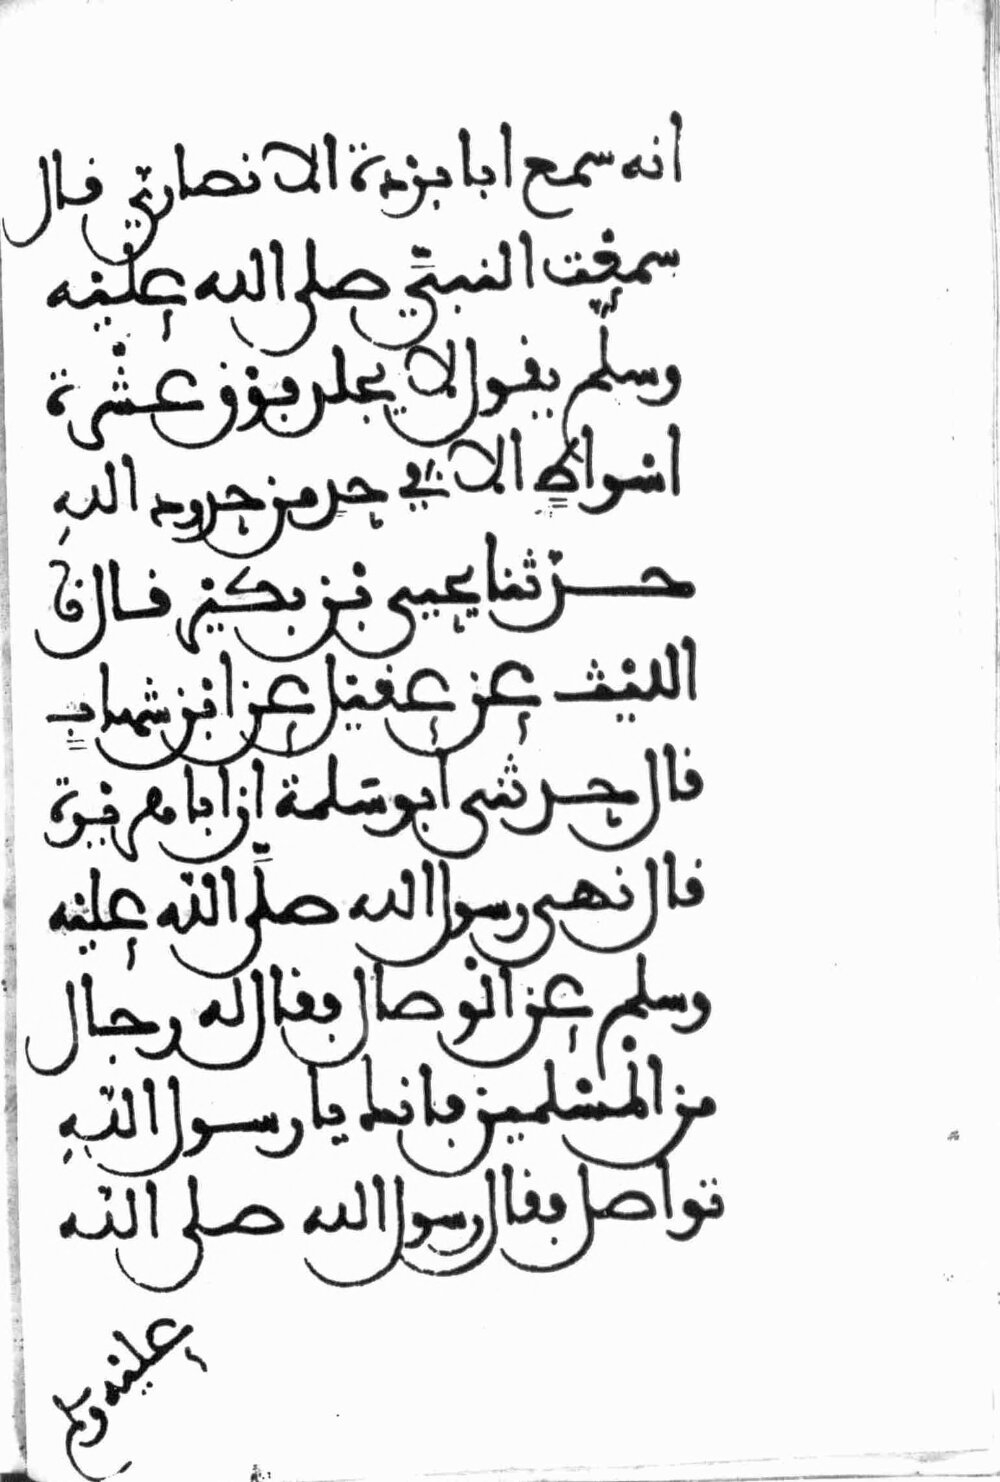 انه سمع ابا بردة الانصاري قال
سمعت النبي صلى الله عليه
وسلم يقول لا يجلد فوق عشرة
اسواط الا في حد من حدود الله
حدثنا يحيى بن بكير قال نا
الليث عن عقيل عن ابن شهاب
قال حدثني ابو سلمة ان ابا هريرة
قال نهى رسول الله صلى الله عليه
وسلم عن الوصال فقال له رجال
من المسلمين فانك يا رسول الله
تواصل فقال رسول الله صلى الله
عليه وسلم